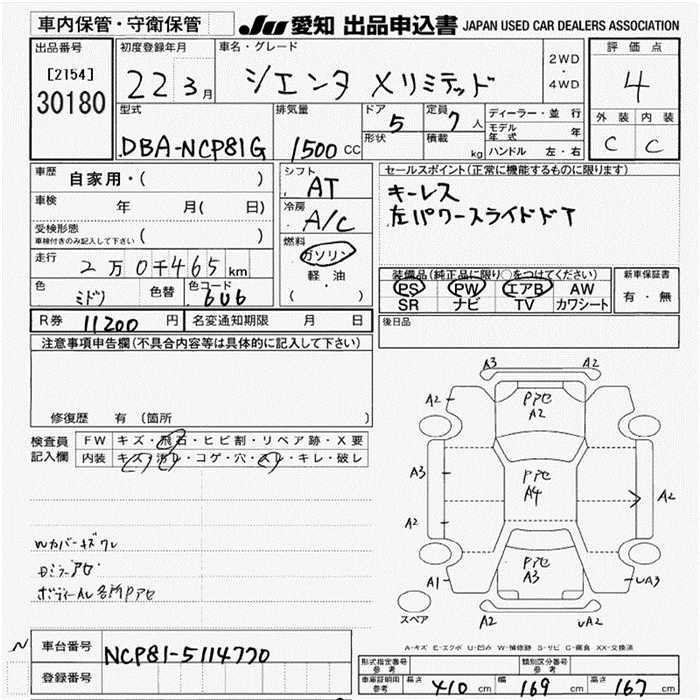 車内保管・守衛保管
JU 愛知 出品申込書 JAPAN USED CAR DEALERS ASSOCIATION
出品番号
[2154]
30180
初度登録年月
22 3月
車名・グレード
シエンタ メリミテッド
2WD
・
4WD
評価点
4
外装 内装
C C
型式
DBA-NCP81G
排気量
1500 CC
ドア
5
定員
7人
形状
積載
kg
ディーラー・並行
モデル年式 年
ハンドル 左・右
車歴
自家用・( )
車検
年 月( 日)
受検形態
車検付きのみ記入して下さい ( )
走行
2万0千465km
色
ミドリ
色替
色コード
6U6
シフト
AT
冷房
A/C
燃料
ガソリン
軽・油
( )
セールスポイント(正常に機能するものに限ります)
キーレス
左パワースライドドア
装備品(純正品に限り○をつけてください)
PS PW エアB AW
SR ナビ TV カワシート
新車保証書
有・無
R券 11200 円
名変通知期限 月 日
後日品
注意事項申告欄(不具合内容等は具体的に記入して下さい)
修復歴 有 (箇所 )
検査員
記入欄
FW キズ・飛石・ヒビ割・リペア跡・X要
内装 キズ・汚レ・コゲ・穴・スレ・キレ・破レ
Wカバーキズワレ
ボディーAL各所Pアセ
A3 A2
A2 Pアセ A2 A2
A3 Pアセ A4 A2
A2
A1 Pアセ A3 UA3
スペア
A2 UA2
A-キズ E-エクボ U-凹み W-補修跡 S-サビ C-腐食 XX-交換済
車台番号
NCP81-5114770
登録番号
形式指定番号
参考
類別区分番号
参考
車庫証明用
参考
長さ 410 cm 幅 169 cm 高さ 167 cm